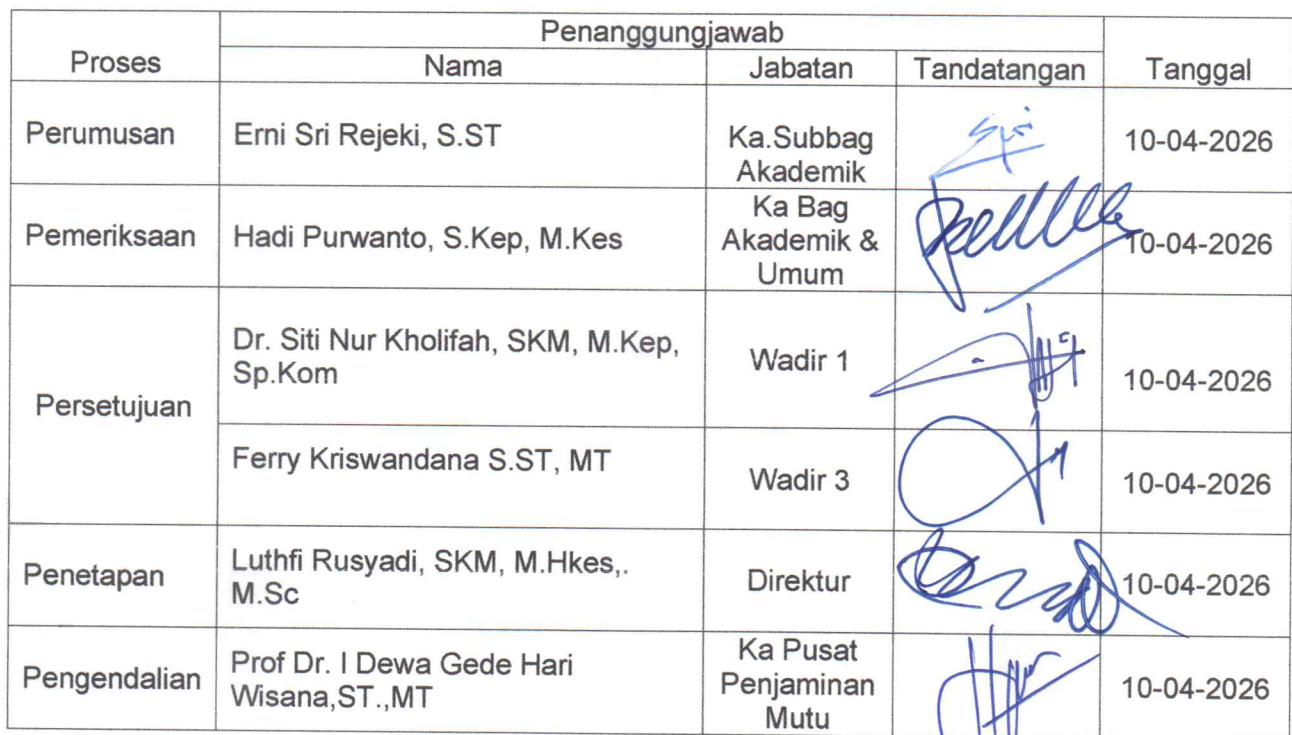 Penanggungjawab
Proses
Nama
Jabatan
Tandatangan
Tanggal
Perumusan
Erni Sri Rejeki, S.ST
Ka.Subbag
Akademik
10-04-2026
Pemeriksaan
Hadi Purwanto, S.Kep, M.Kes
Ka Bag
Akademik &
Umum
10-04-2026
Persetujuan
Dr. Siti Nur Kholifah, SKM, M.Kep,
Sp.Kom
Wadir 1
10-04-2026
Ferry Kriswandana S.ST, MT
Wadir 3
10-04-2026
Penetapan
Luthfi Rusyadi, SKM, M.Hkes,.
M.Sc
Direktur
10-04-2026
Pengendalian
Prof Dr. I Dewa Gede Hari
Wisana,ST.,MT
Ka Pusat
Penjaminan
Mutu
10-04-2026